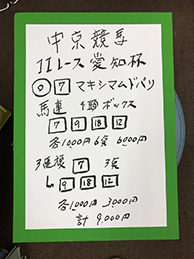 中京競馬
11レース愛知杯
◎ 7 マキシマムドパリ
馬連 4頭ボックス
7 9 18 12
各1,000円 6点 6000円
3連複 7 3点
9 18 12
各1,000円 3000円
計 9,000円